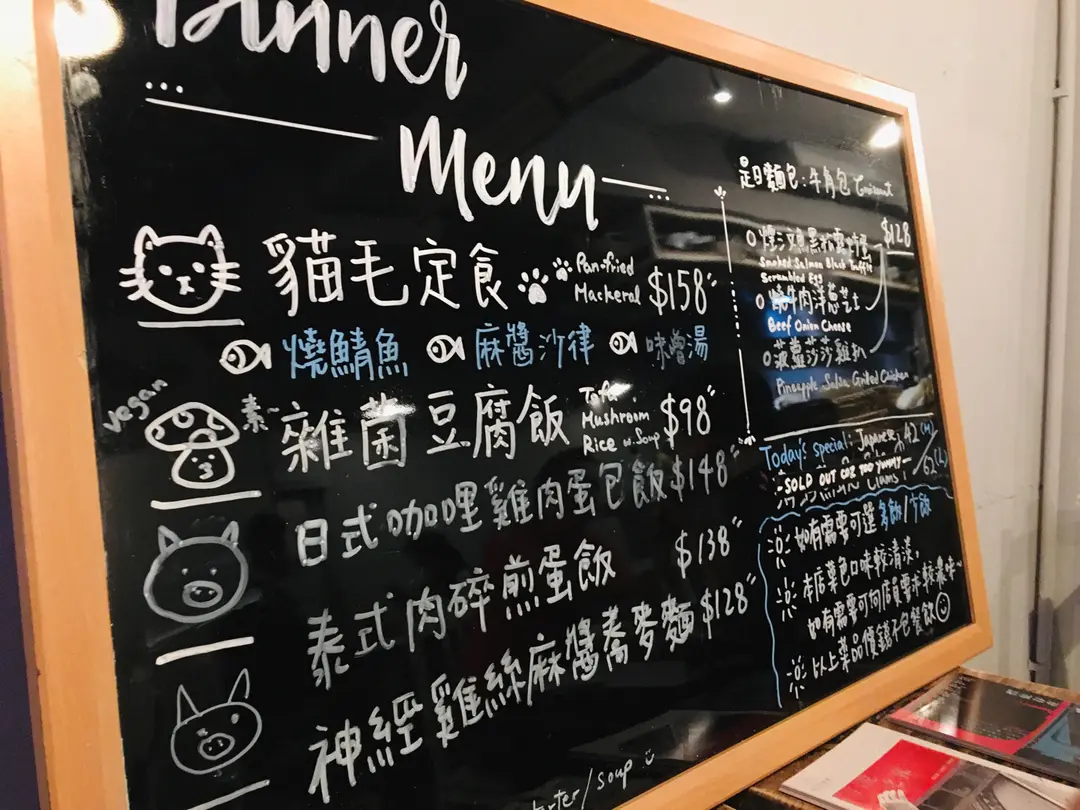 Dinner
Menu
貓毛定食 Pan-fried Mackeral $158
燒鯖魚 麻醬沙律 味噌湯
vegan 素
雜菌豆腐飯 Tofu Mushroom Rice w. Soup $98
日式咖哩雞肉蛋包飯 $148
泰式肉碎煎蛋飯 $138
神經雞絲麻醬蕎麥麵 $128
/soup
是日麵包:牛角包 Croissant
$128
Smoked Salmon Black Truffle
Scrambled Egg
燒牛肉洋蔥芝士
Beef Onion Cheese
菠蘿莎莎雞扒
Pineapple Salsa Grilled Chicken
Today's special: Japanese 42 (M)
SOLD OUT COZ TOO YUMMY 62 (L)
Clams
如有需要可選多飯/少飯
本店菜色口味較清淡,
如有需要可向店員要求較濃味~
以上菜品價錢不包餐飲